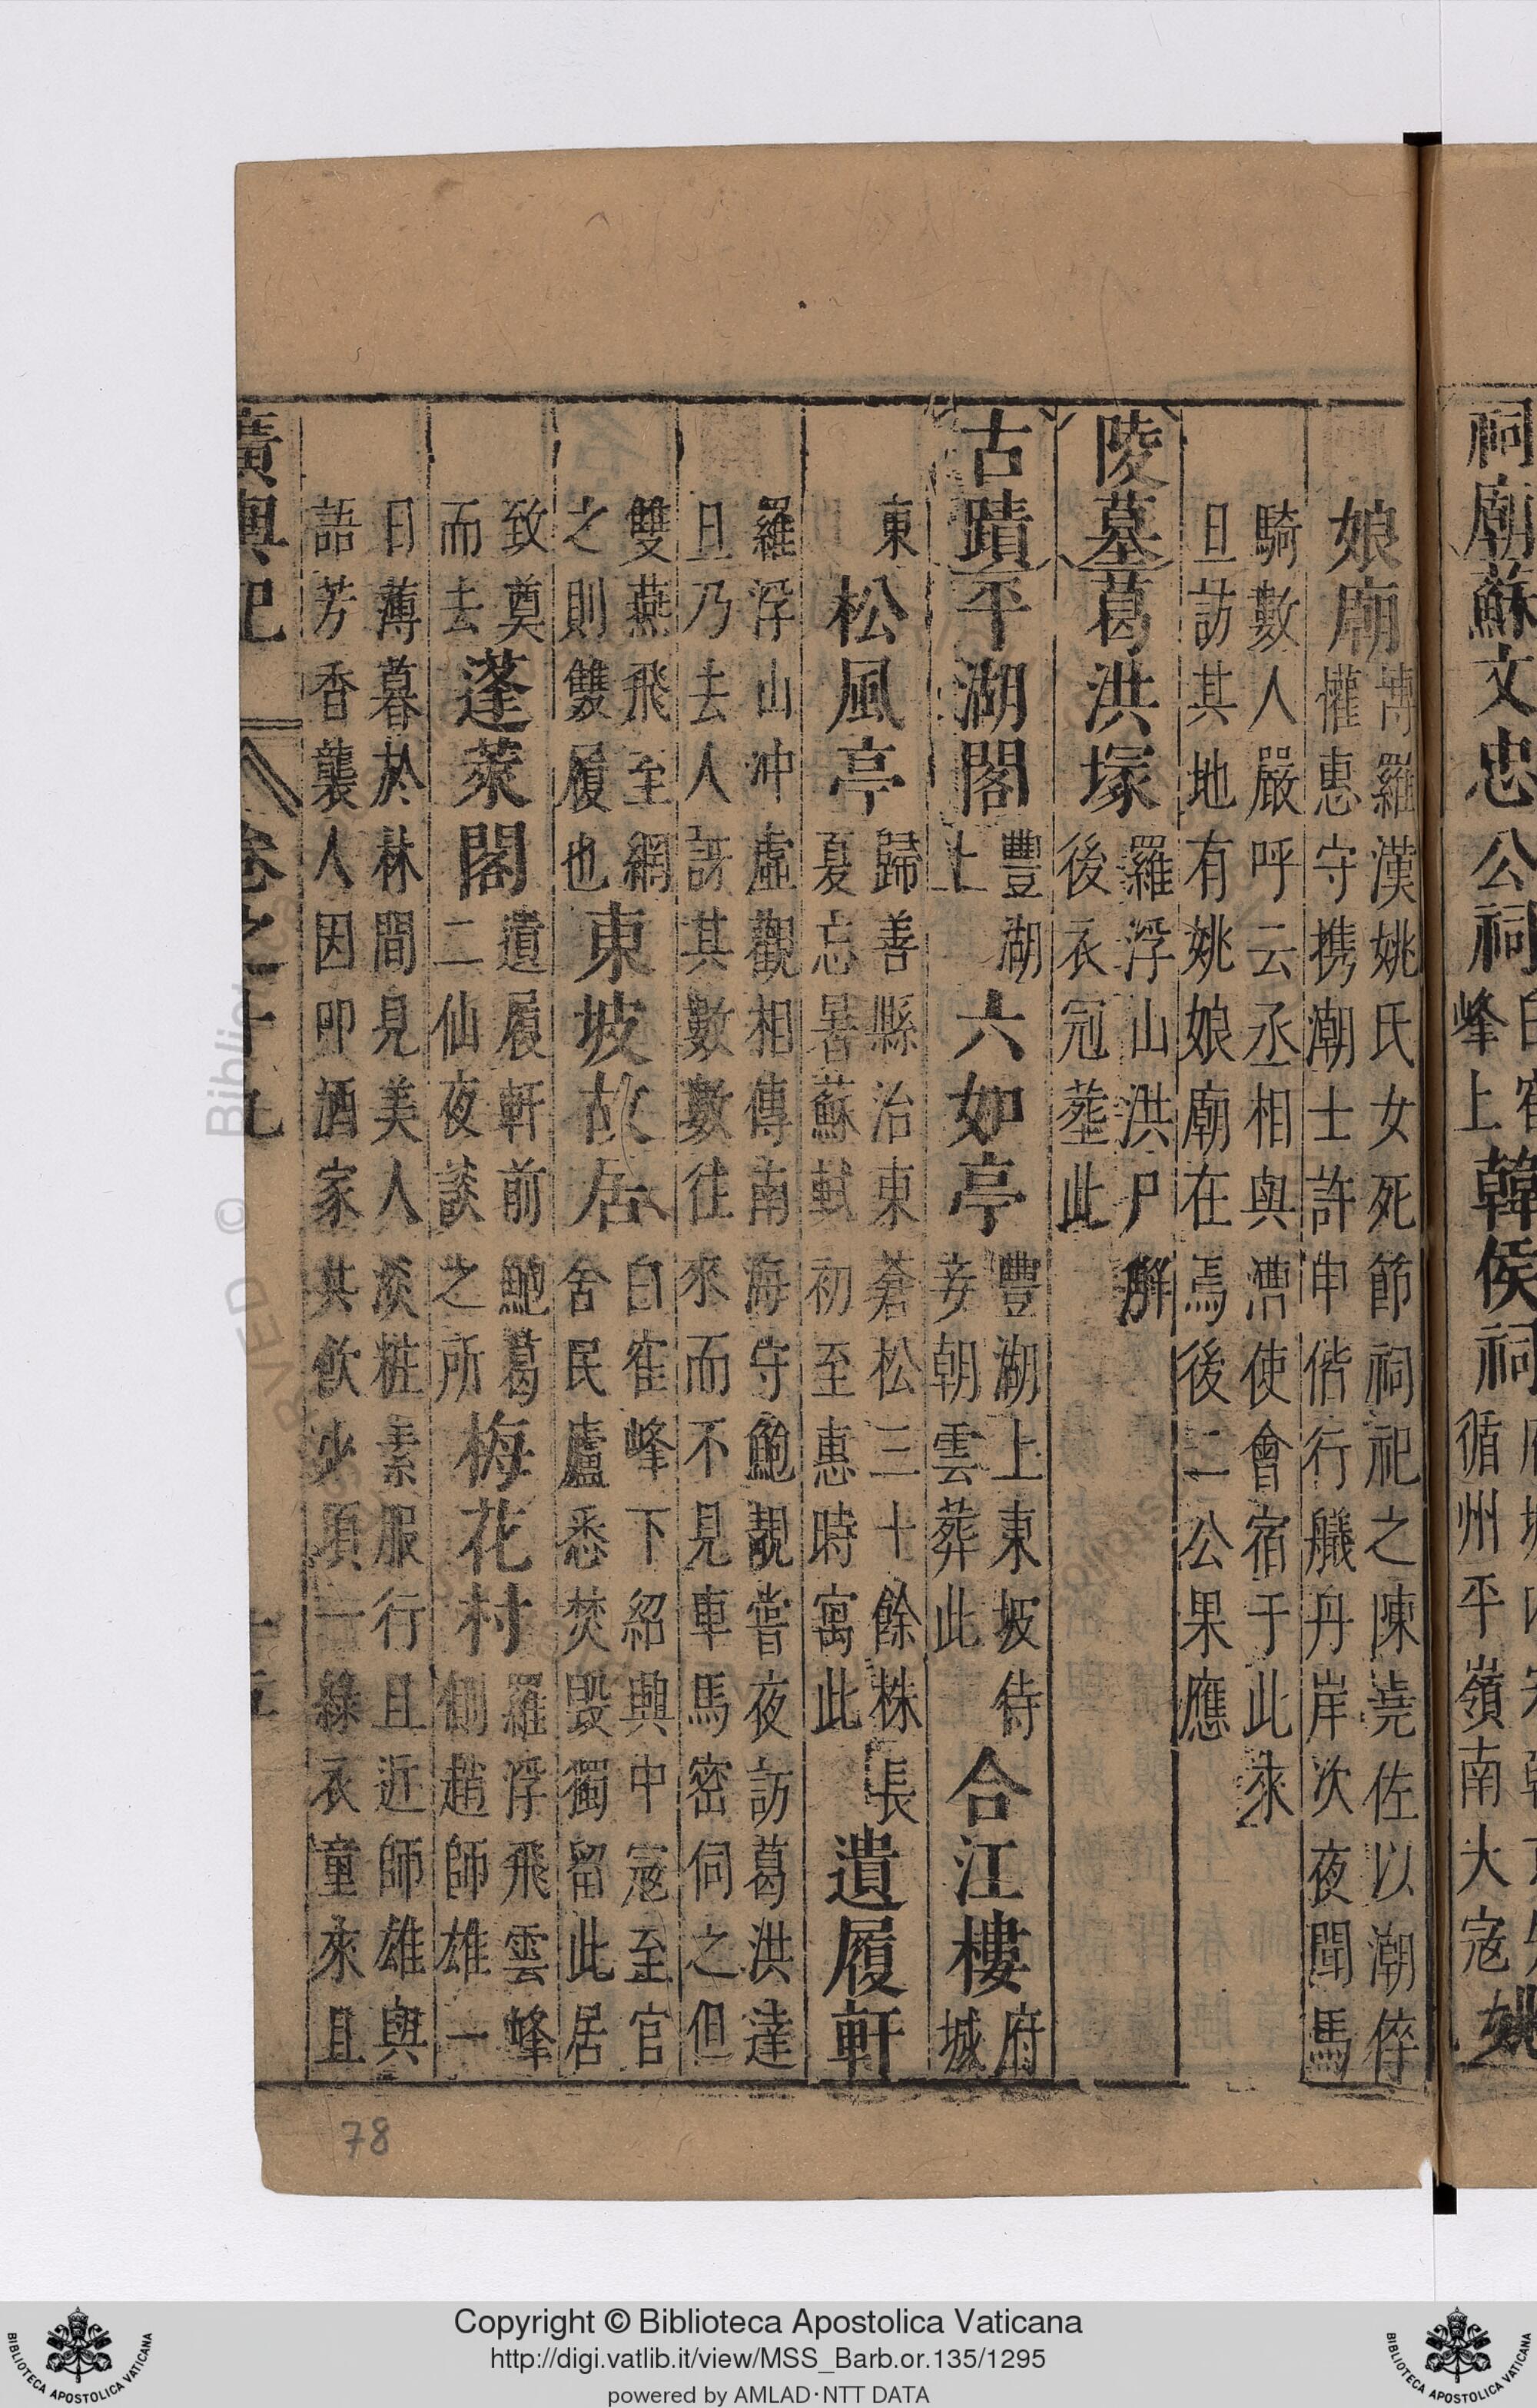 祠廟蘇文忠公祠
峰上韓侯祠循州平嶺南大寇姚
娘廟博羅漢姚氏女死節祠祀之陳堯佐以潮倅
權惠守携潮士許申偕行艤丹岸次夜聞馬
騎數人嚴呼云丞相與漕使會宿于此來
旦訪其地有姚娘廟在焉後二公果應
陵墓葛洪塚羅浮山洪尸解
後衣冠塟此
古蹟平湖閣豐湖
上六如亭豐湖上東坡侍
妾朝雲葬此合江樓府
城
東松風亭歸善縣治東蒼松三十餘株長
夏忘暑蘇軾初至惠時寓此遺履軒
羅浮山冲虛觀相傳南海守鮑靚嘗夜訪葛洪達
旦乃去人訝其數數徃來而不見車馬密伺之但
雙燕飛至網
之則雙履也東坡故居白崔峰下紹興中寇至官
舍民廬悉焚毁獨留此居
致奠
而去蓬萊閣遺履軒前鮑葛
二仙夜談之所梅花村羅浮飛雲峰
側趙師雄一
日薄暮於林間見美人淡粧素服行且近師雄與
語芳香襲人因叩酒家共飲少頃一綠衣童來且
廣輿記 卷之十九
78
Copyright © Biblioteca Apostolica Vaticana
http://digi.vatlib.it/view/MSS_Barb.or.135/1295
powered by AMLAD·NTT DATA
BIBLIOTECA APOSTOLICA VATICANA
BIBLIOTECA APOSTOLICA VATICANA